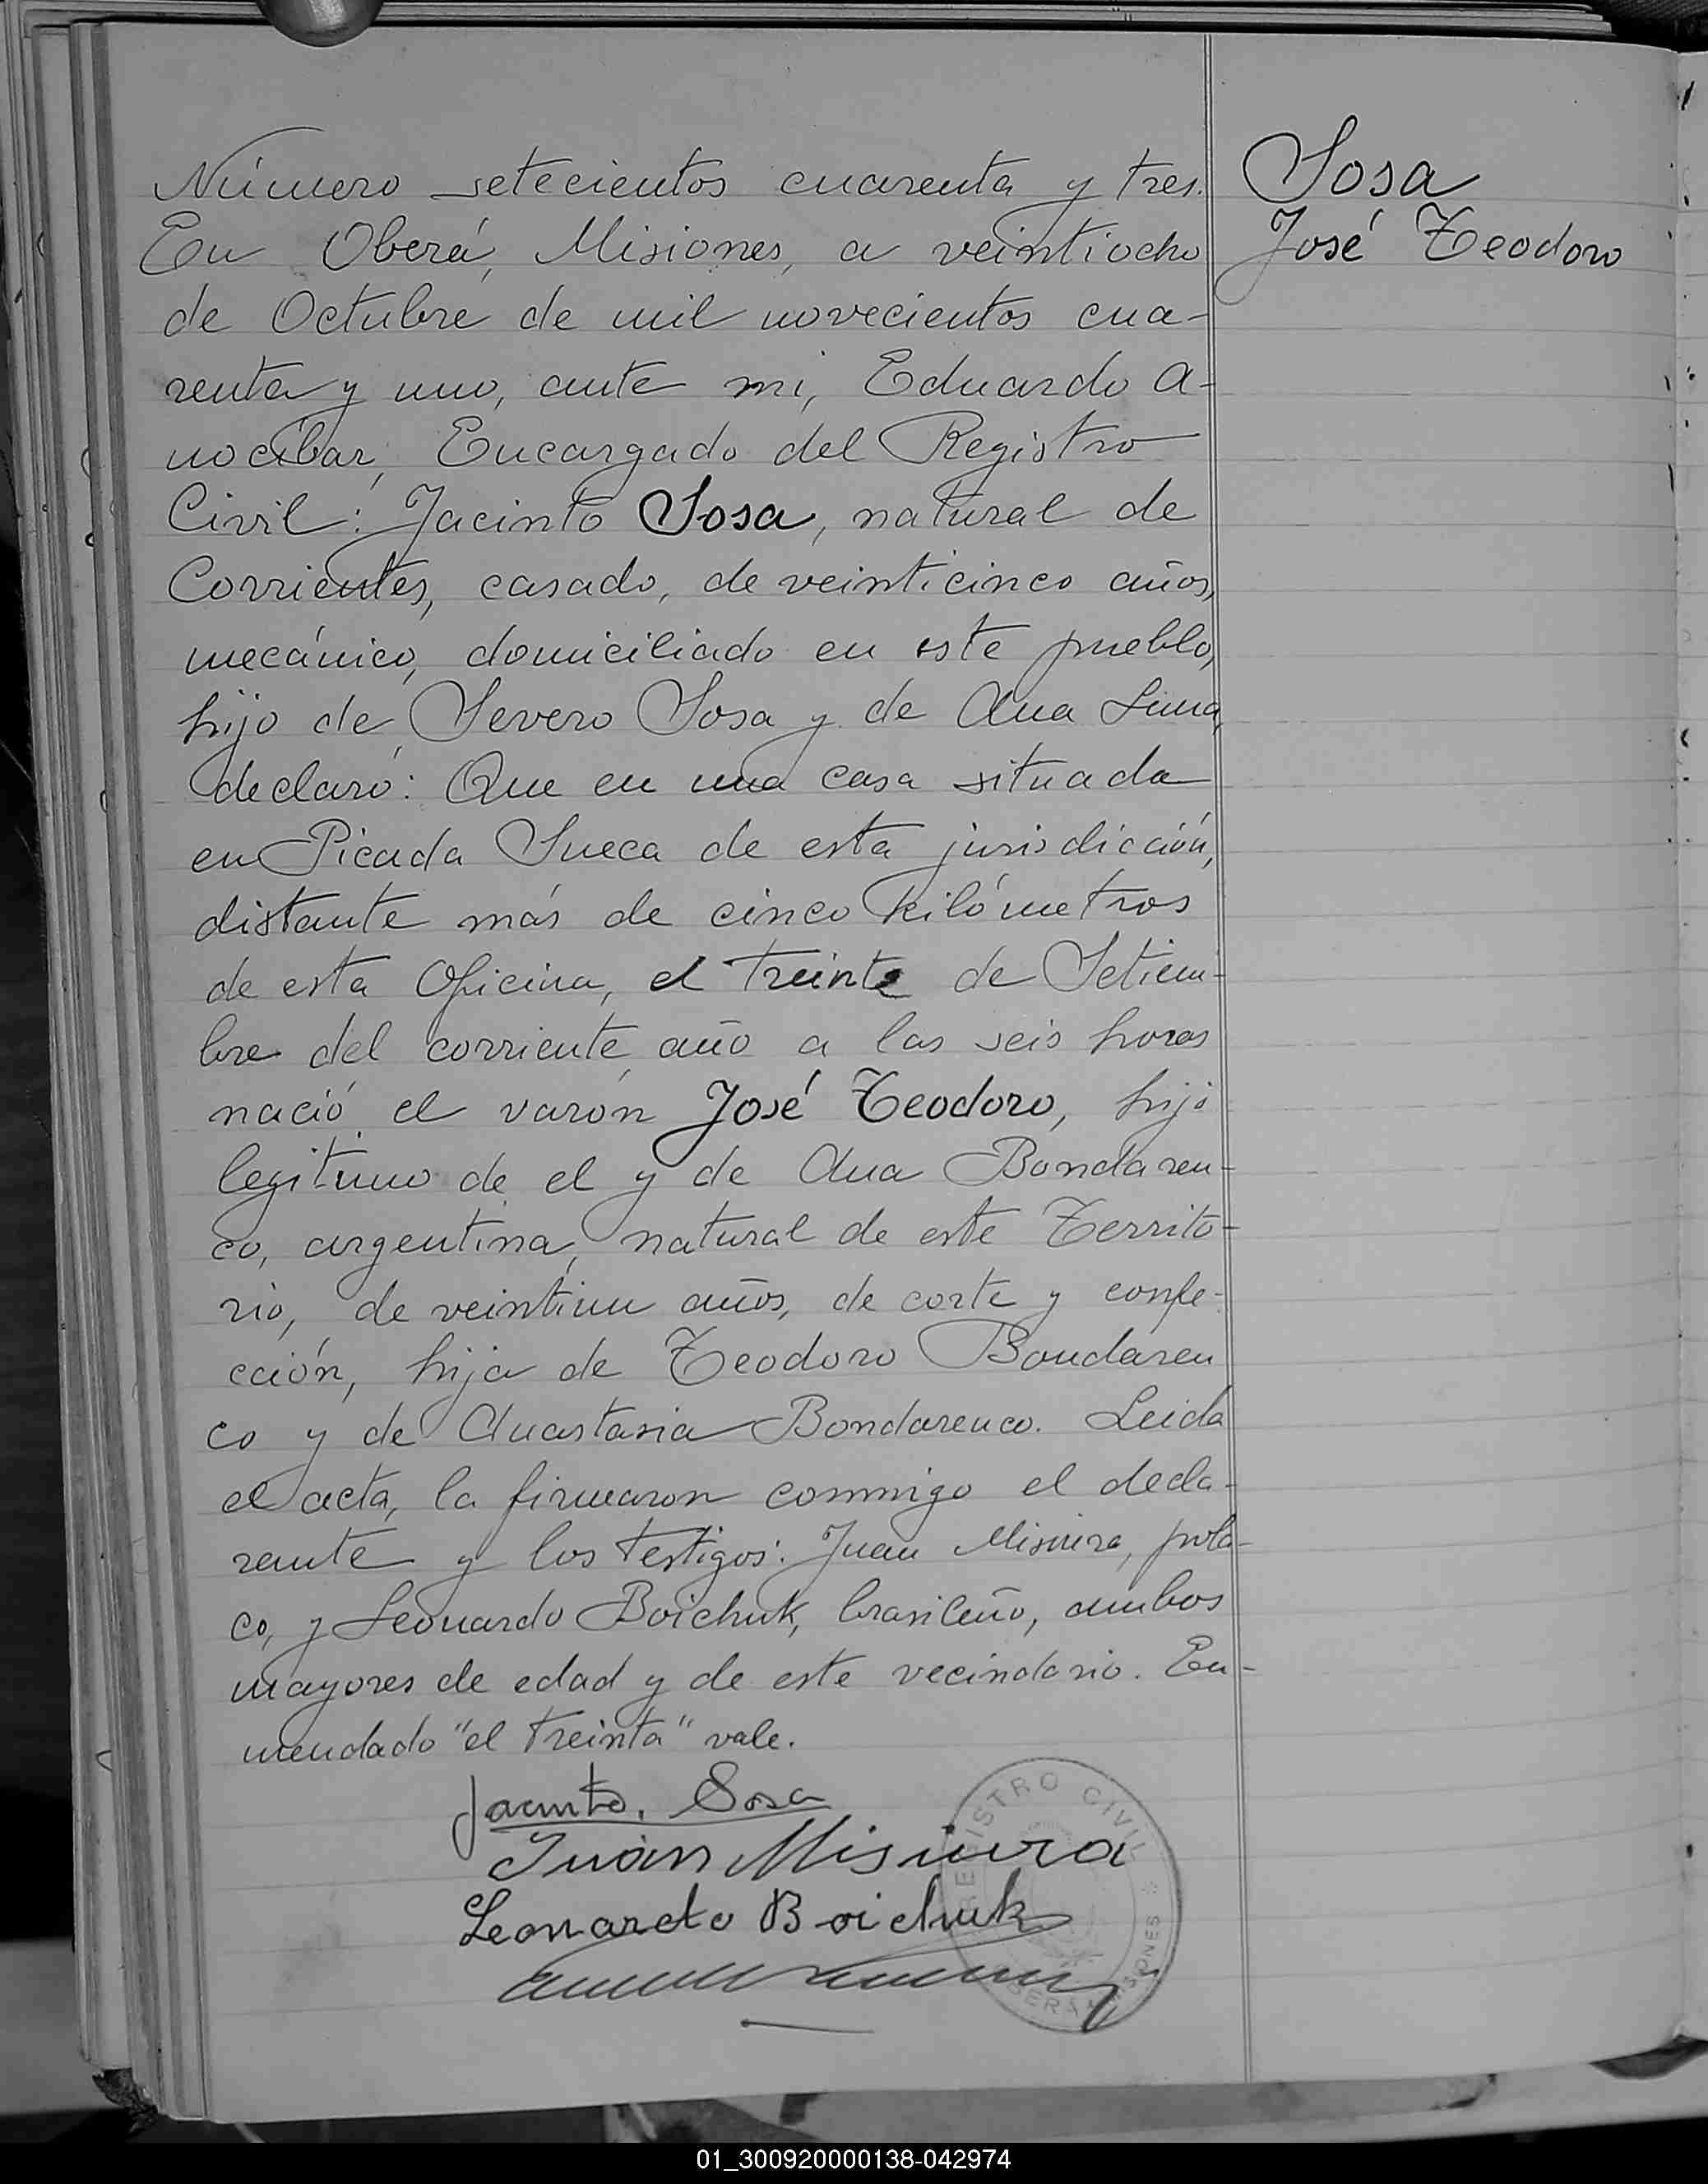 Número setecientos cuarenta y tres.
En Oberá, Misiones, a veintiocho
de Octubre de mil novecientos cua-
renta y uno, ante mi, Eduardo A-
nocibar, Encargado del Registro
Civil: Jacinto Sosa, natural de
Corrientes, casado, de veinticinco años,
mecánico, domiciliado en este pueblo,
hijo de Severo Sosa y de Ana Luna,
declaró: Que en una casa situada
en Picada Sueca de esta jurisdicción,
distante más de cinco kilómetros
de esta Oficina, el treinta de Setiem-
bre del corriente año a las seis horas
nació el varón José Teodoro, hijo
legitimo de el y de Ana Bondaren-
co, argentina, natural de este Territo-
rio, de veintiun años, de corte y confe-
cción, hija de Teodoro Bondaren
co y de Anastasia Bondarenco. Leida
el acta, la firmaron conmigo el decla-
rante y los testigos: Juan Misiura, pola-
co, y Leonardo Boichuk, brasileño, ambos
mayores de edad y de este vecindario. En-
mendado "el treinta" vale.
Jacinto. Sosa
Juan Misiura
Leonardo Boichuk
REGISTRO CIVIL
OBERÁ MISIONES
Sosa
José Teodoro
01_300920000138-042974